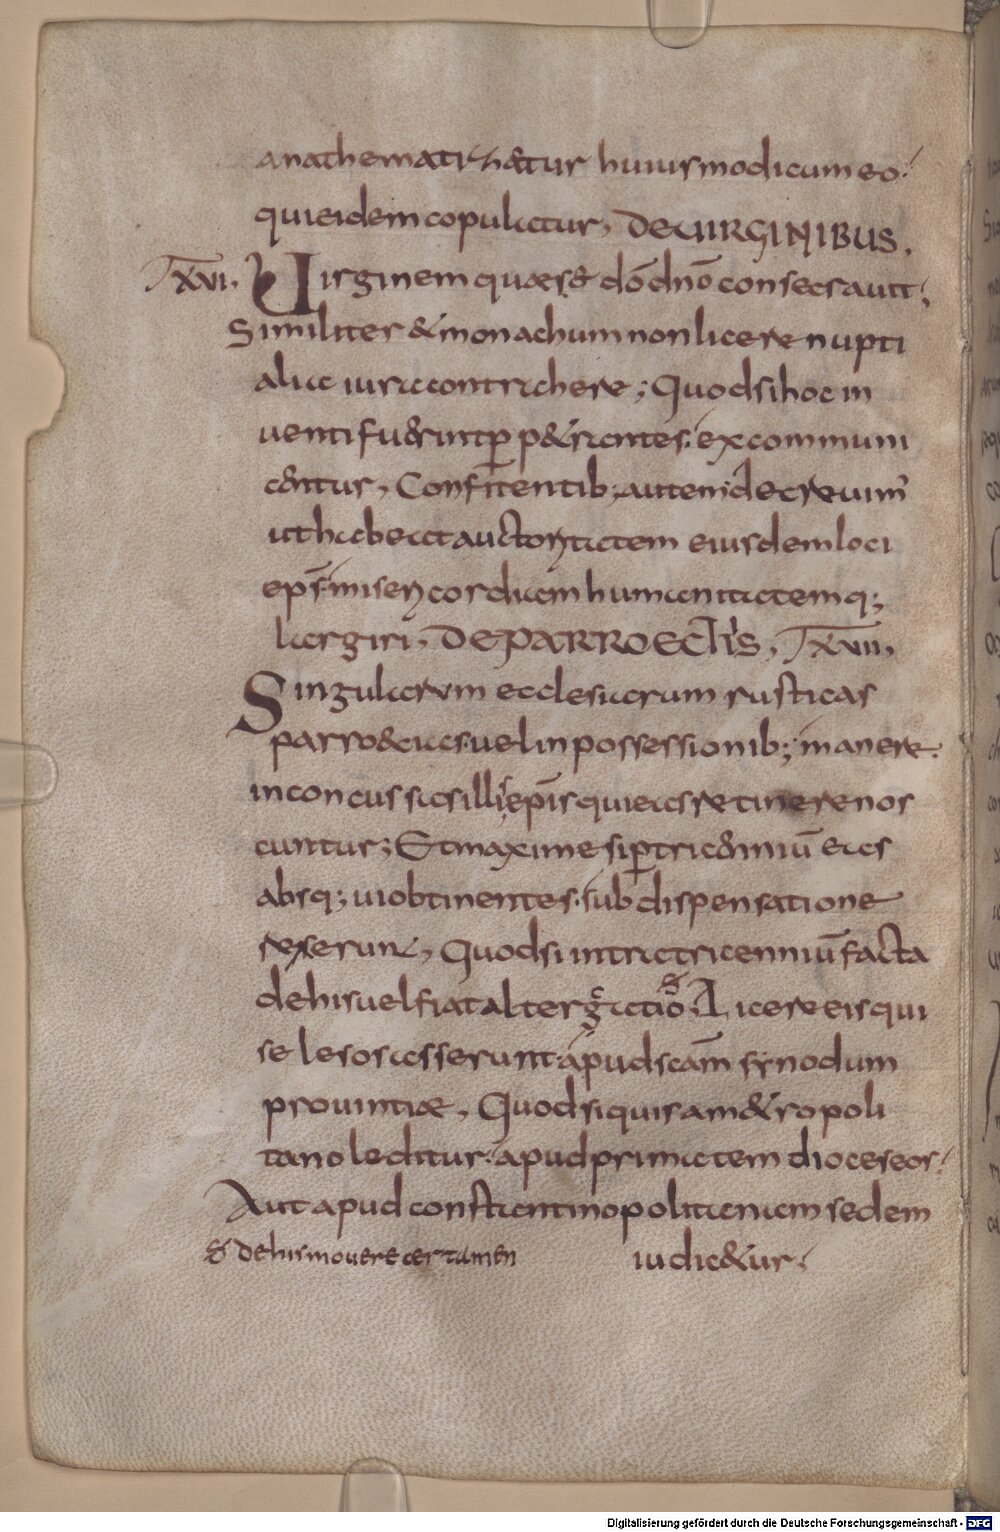 anathematizatur huiusmodi cum eo.
qui eidem copulatur, DE UIRGINIBUS.
T̄ XVI. Uirginem quae se dō dnō consecrauit;
Similiter & monachum non licere nupti
alia iura contrahere; Quod si hoc in
uenti fuerint p̱ p&rantes. excommuni
centur, Confitentib; autem decreuim'
ut habeat auctoritatem eiusdem loci
ep̄s misericordiam humanitatemq;
largiri, DE PARROECIIS, T̄ XVII,
Singularum ecclesiarum rusticas
parro&ias. uel in possessionib; manere.
inconcussas illis ep̄is qui eas retinere nos
cuntur; Et maxime si p̱ tricenniū eas
absq; ui obtinentes. sub dispensatione
rexerunt, Quod si intra tricenniū facta
de his uel fiat altergatiō & Licere eis qui
se lesos asserunt. apud scām synodum
prouintiae, Quod si quis a m&ropoli
tano leditur. apud primatem dioceseos.
Aut apud constantinopolitanam sedem
iudic&ur.
& de his mouere certamen
Digitalisierung gefördert durch die Deutsche Forschungsgemeinschaft - DFG